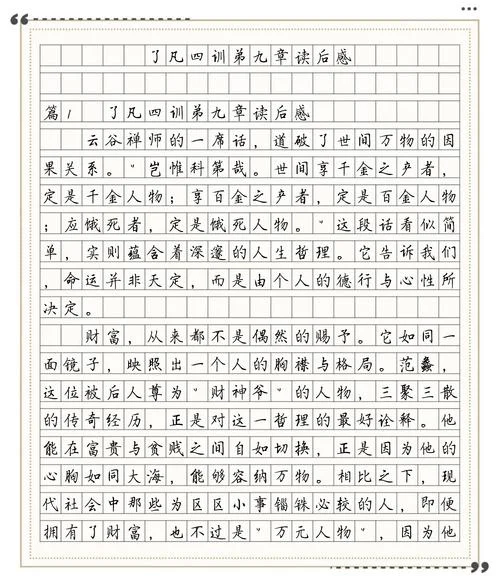 了凡四训第九章读后感
篇1 了凡四训第九章读后感
云谷禅师的一席话，道破了世间万物的因
果关系。"岂惟科第哉。世间享千金之产者，
定是千金人物；享百金之产者，定是百金人物
；应饿死者，定是饿死人物。"这段话看似简
单，实则蕴含着深邃的人生哲理。它告诉我们
，命运并非天定，而是由个人的德行与心性所
决定。
财富，从来都不是偶然的赐予。它如同一
面镜子，映照出一个人的胸襟与格局。范蠡，
这位被后人尊为"财神爷"的人物，三聚三散
的传奇经历，正是对这一哲理的最好诠释。他
能在富贵与贫贱之间自如切换，正是因为他的
心胸如同大海，能够容纳万物。相比之下，现
代社会中那些为区区小事锱铢必较的人，即便
拥有了财富，也不过是"万元人物"，因为他